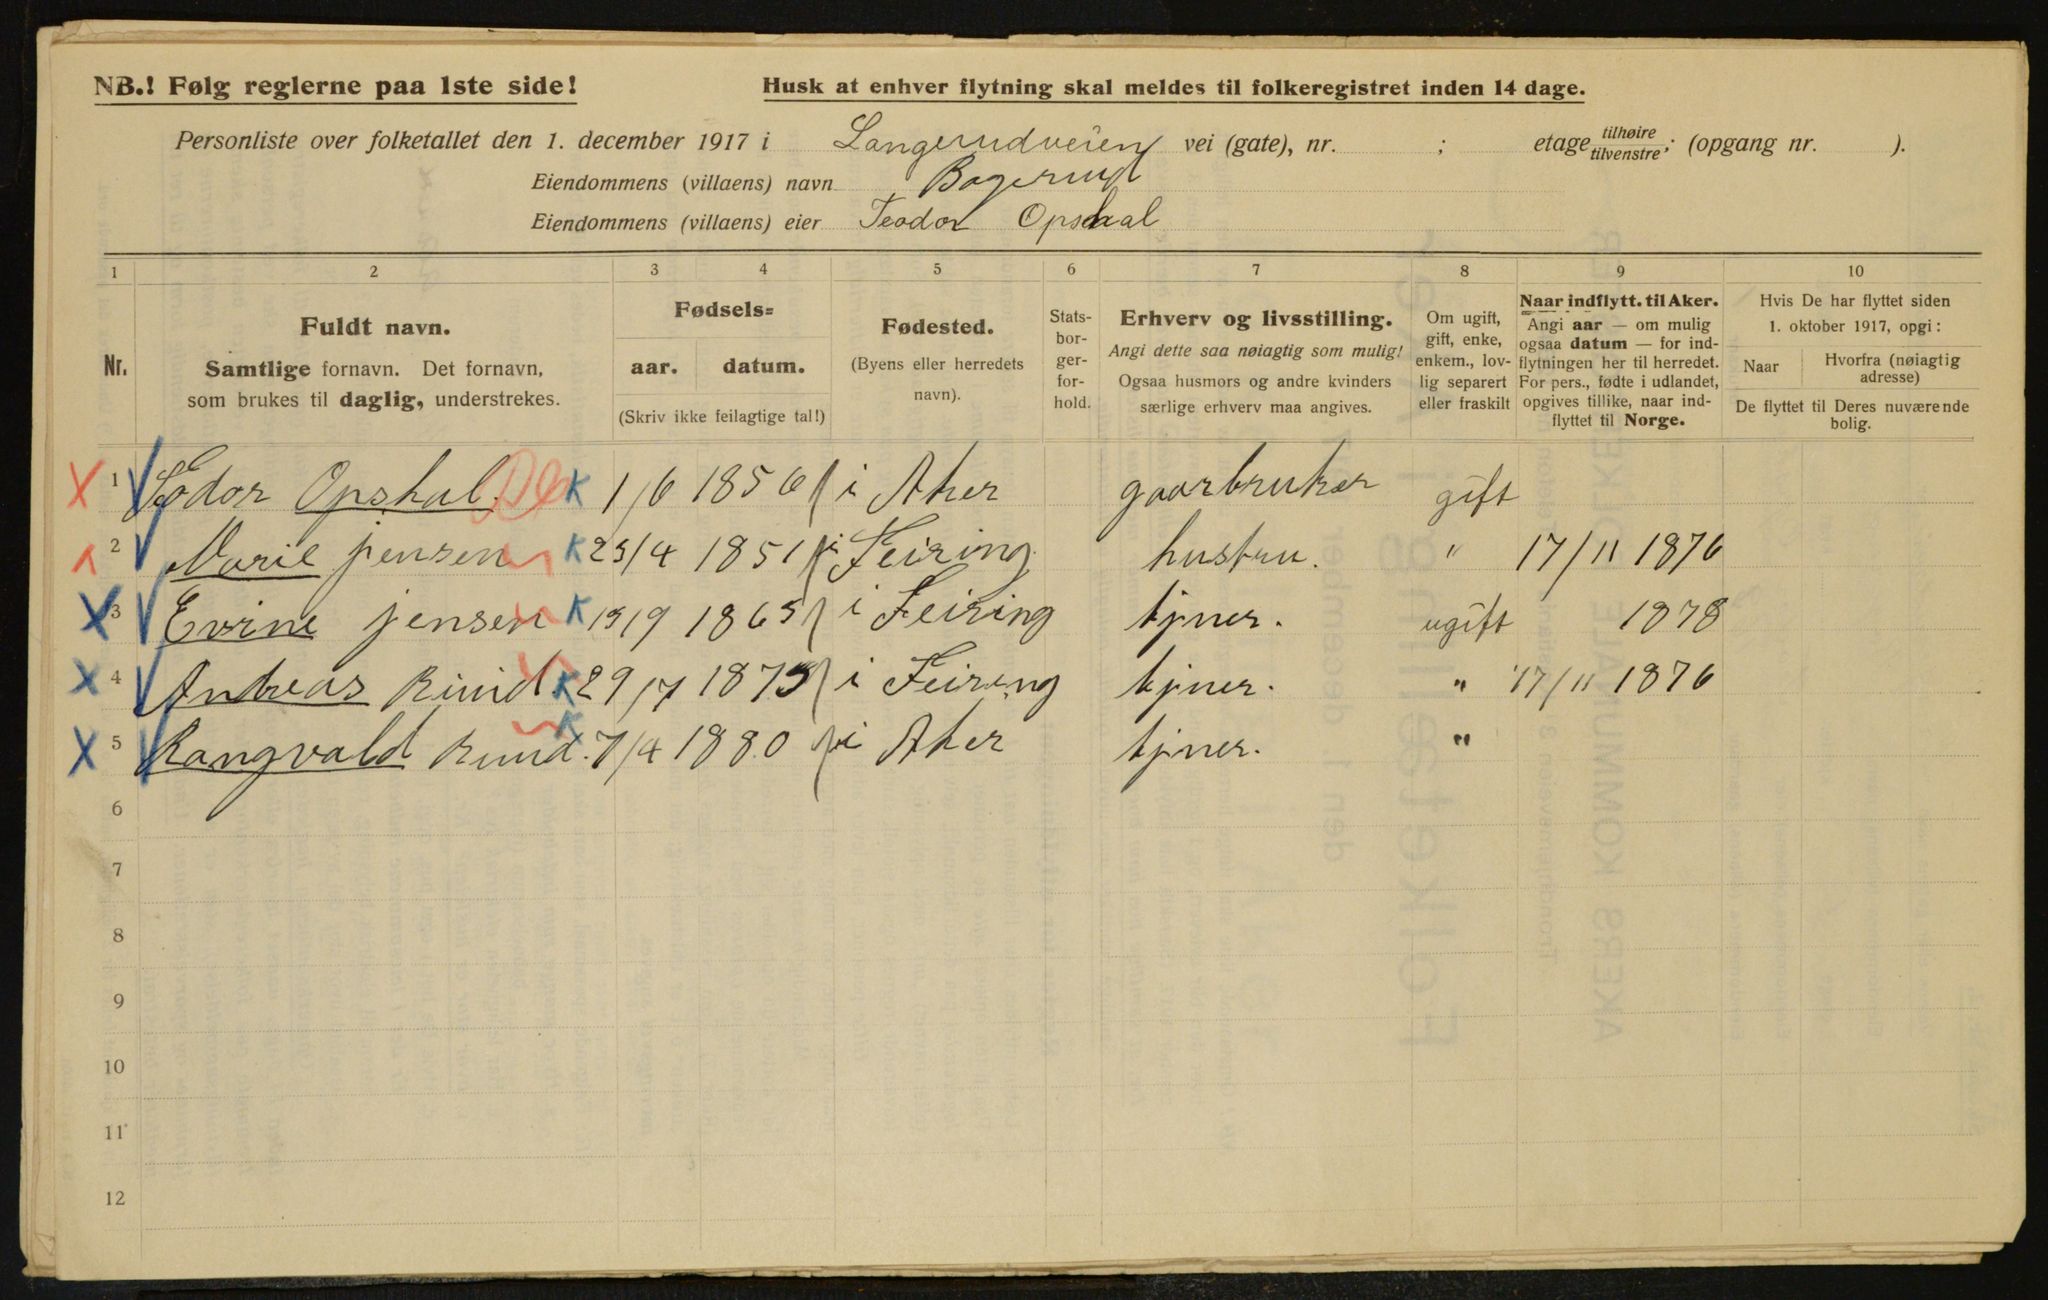 NB.! Følg reglerne paa 1ste side!
Husk at enhver flytning skal meldes til folkeregistret inden 14 dage.
Personliste over folketallet den 1. december 1917 i Langerudveien vei (gate), nr. ; etage tilhøire tilvenstre; (opgang nr. ).
Eiendommens (villaens) navn Bogerud
Eiendommens (villaens) eier Teodor Opshal
1 2 3 4 5 6 7 8 9 10
Nr.
Fuldt navn.
Samtlige fornavn. Det fornavn,
som brukes til daglig, understrekes.
Fødsels=
aar. datum.
(Skriv ikke feilagtige tal!)
Fødested.
(Byens eller herredets
navn).
Stats-
bor-
ger-
for-
hold.
Erhverv og livsstilling.
Angi dette saa nøiagtig som mulig!
Ogsaa husmors og andre kvinders
særlige erhverv maa angives.
Om ugift,
gift, enke,
enkem., lov-
lig separert
eller fraskilt
Naar indflytt. til Aker.
Angi aar — om mulig
ogsaa datum — for ind-
flytningen her til herredet.
For pers., fødte i udlandet,
opgives tillike, naar ind-
flyttet til Norge.
Hvis De har flyttet siden
1. oktober 1917, opgi:
Naar
Hvorfra (nøiagtig
adresse)
De flyttet til Deres nuværende
bolig.
X 1 Teodor Opshal K 1/6 1856 i Aker gaarbruker gift
2 Marie jensen K 23/4 1851 i Feiring hustru. " 17/11 1876
X 3 Evine jensen K 19/9 1865 i Feiring tjner. ugift 1878
X 4 Andreas Ruud K 29/7 1875 i Feiring tjner. " 17/11 1876
X 5 Rangvald Ruud. K 7/4 1880 i Aker tjner. "
6
7
8
9
10
11
12